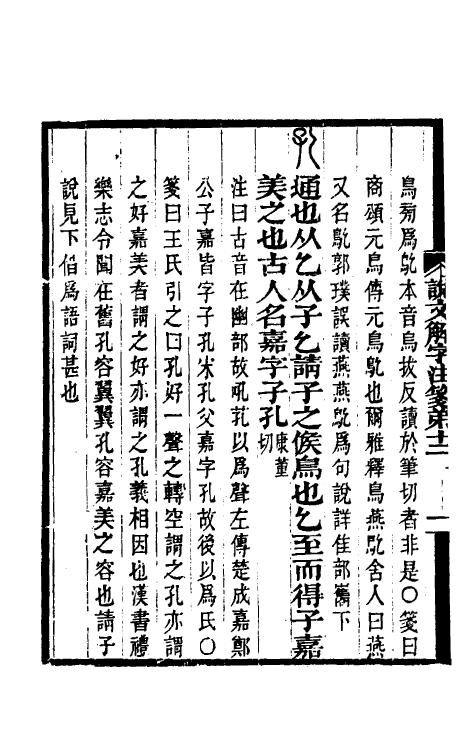 鳥菊爲鳦本音烏拔反讀於筆切者非是〇箋曰
商頌元鳥傳元鳥鳦也爾雅釋鳥燕鳦舍人曰燕
又名鳦郭璞誤讀燕燕鳦爲句說詳隹部巂下
孔通也从乞从子乞請子之候鳥也乞至而得子嘉
美之也古人名嘉字子孔康董切
注曰古音在幽部故吼芤以爲聲左傳楚成嘉鄭
公子嘉皆字子孔宋孔父嘉字孔故後以爲氏〇
箋曰王氏引之曰孔好一聲之轉空謂之孔亦謂
之好嘉美者謂之好亦謂之孔義相因也漢書禮
樂志令聞在舊孔容翼翼孔容嘉美之容也請子
說見下借爲語詞甚也
說文解字注箋第十二
一